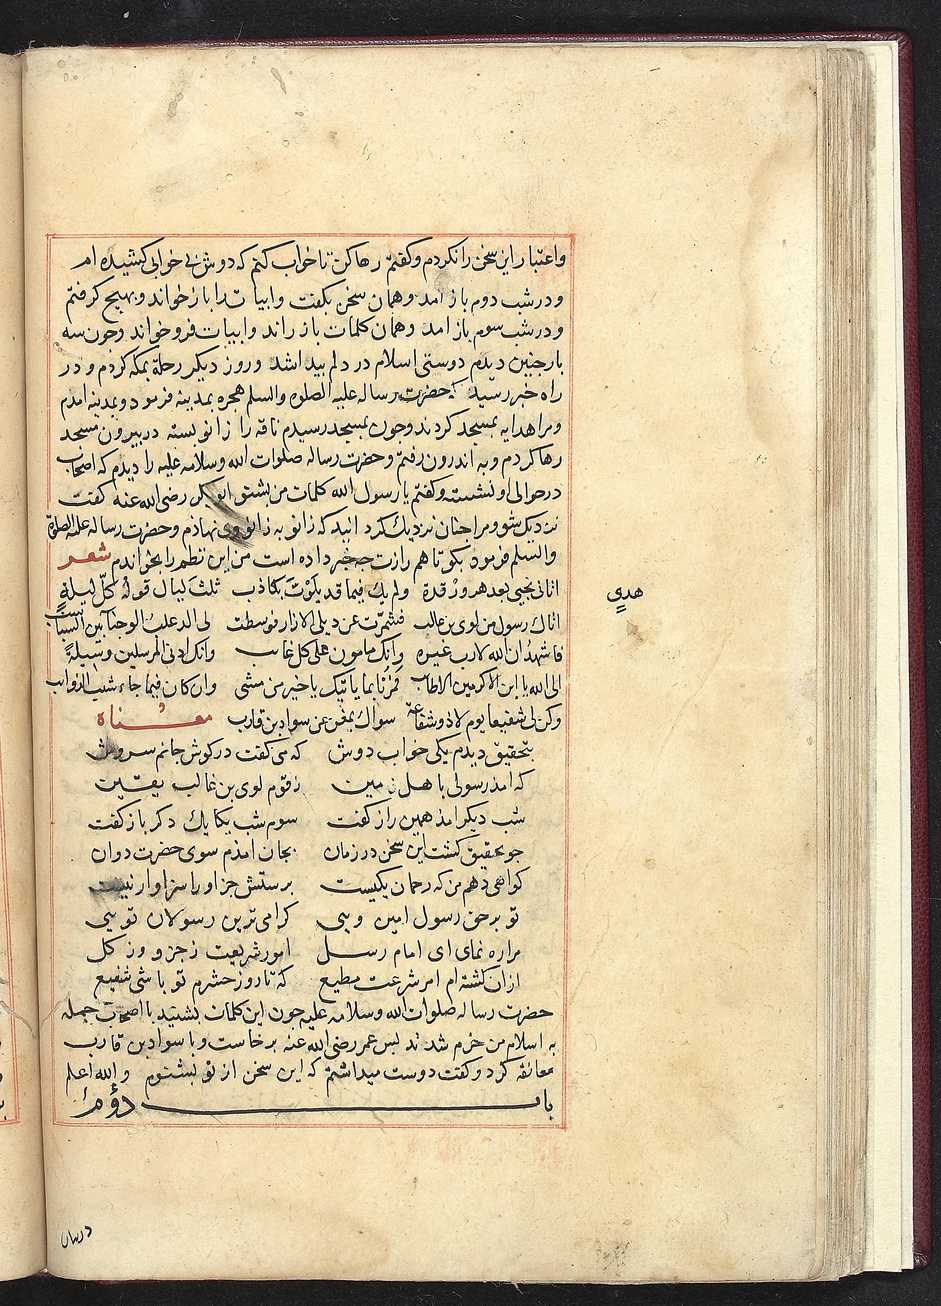 واعتبار این سخن را نکردم وکفتم رها کن تا خواب کنم که دوش بی خوابی کشیده ام
ودر شب دوم باز آمد وهمان سخن بکفت وابیات را باز خواند وبهیچ کرفتم
ودر شب سوم باز آمد وهمان کلمات باز راند وابیات فرو خواند وجون سه
بار جنین دیدم دوستی اسلام در دلم پیدا شد وروز دیکر رحلة بمکه کردم ودر
راه خبر رسید که حضرت رساله علیه الصلوة والسلم هجره بمدینه فرمود وبمدینه امدم
ومرا هدایه بمسجد کردند وجون بمسجد رسیدم ناقه را زانو بسته در بیرون مسجد
رها کردم وبه اندرون رفتم وحضرت رساله صلوات الله وسلامه علیه را دیدم که اصحاب
در حوالی او نشسته وکفتم یا رسول الله کلمات من بشنو ابو بکر رضی الله عنه کفت
نزدیک شو ومرا جنان نزدیک کردانید که زانو به زانوی وی نهادم وحضرت رساله علیه الصلوة
والسلم فرمود بکو تا هم رازت جه خبر داده است من این نظم را بخواندم شعر
اتانی نجیی بعد هدو ورقدة ولم یك فیما قد بلوت بکاذب ثلث لیال قوله کل لیلة
هدیٍ
اتاك رسول من لوی بن غالب فشمرت عن ذیلی الازار فوسطت لی الدعلب الوجنآ بین السباسب
فاشهد ان الله لا رب غیره وانك مامون علی کل غایب وانك ادنی المرسلین وسیلةً
الی الله یا ابن الاکرمین الاطایب فمرنا بما یاتیك یا خیر من مشی وان کان فیما جاء شیب الذوایب
وکن لی شفیعا یوم لا ذو شفاعة سواك بمغن عن سواد بن قارب معناه
بتحقیق دیدم یکی خواب دوش که می کفت در کوش جانم سروش
که امد رسولی با هل زمین زقوم لوی بن غالب یقین
شب دیکر امد همین راز کفت سوم شب یکایك دکر باز کفت
جو تحقیق کشت این سخن در زمان بجان امدم سوی حضرت دوان
کواهی دهم من که رحمان یکیست برستش جز او را سزاوار نیست
تو بر حق رسول امین وبی کرامی ترین رسولان تویی
مرا ره نمای ای امام رسل امور شریعت زجزو وز کل
ازان کشته ام امر شرعت مطیع که تا روز حشرم تو باشی شفیع
حضرت رساله صلوات الله وسلامه علیه جون این کلمات بشنید با اصحاب جمله
به اسلام من خرم شدند بس عمر رضی الله عنه برخاست وبا سواد بن قارب
معانقه کرد وکفت دوست میداشتم که این سخن از تو بشنوم والله اعلم
باب دوم